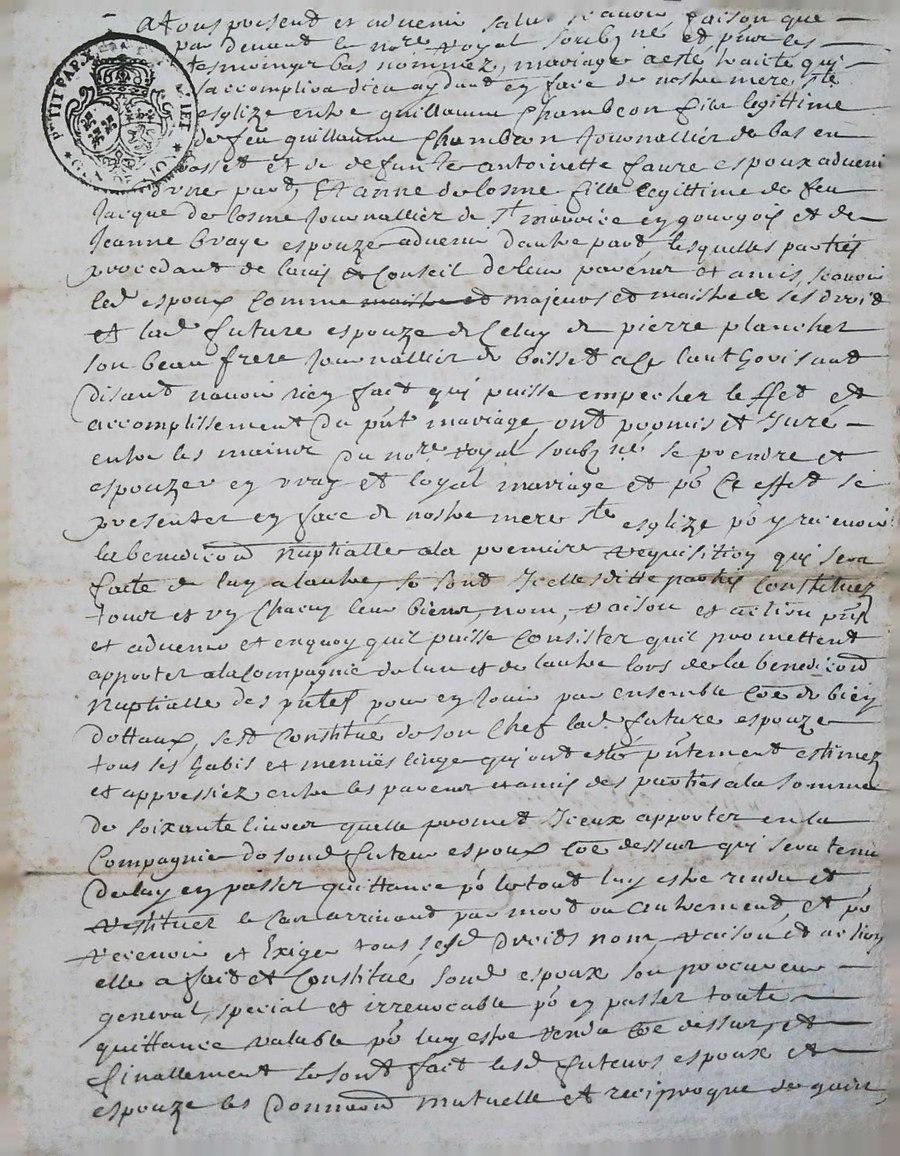 A tous present et advenir salut scavoir faison que
par devant le nore royal soubzné et pnt les
tesmoingz bas nommez, mariage a esté traicté qui
s'accomplira dieu aydant en face de nostre mere ste
esglize entre guillaume Chambeon filz legittime
de feu guillaume Chambeon Journallier de bas en
basset et de deffunte antoinette faure espoux advenir
d'une part, Et anne delosme fille legittime de feu
Jacque delosme Journallier de st mavrice en gourgois et de
Jeanne braye espouze advenir d'autre part, lesquelles parties
procedant de l'avis et Conseil de leur parens et amis, scavoir
led espoux Comme maistre et majeurs et maistre de ses droid
et lad future espouze de Celuy de pierre plancher
son beau frere Journallier de boisset a ce l'authorisant
disant n'avoir rien fait qui puisse empecher l'effet et
accomplissement du pnt mariage, ont promis et Juré
entre les mains du nore royal soubzné se prendre et
espouzer en vray et loyal mariage et po Ce effet se
presenter en face de nostre mere ste esglize po y recevoir
la benediction Nuptialle a la premiere requisition qui sera
faite de l'uy a l'autre, se sont Icelles ditte parties Constituez
tous et un Chacun leur biens, nom, raison et action pnt
et advenir et en quoy qu'il puisse Consister qu'il promettent
apporter a la Compagnie de l'un et de l'autre lors de la benediction
Nuptialle des pntes pour en Jouir par ensemble Coe de bien
dottaux, s'est Constitué de son Chef lad future espouze
tous ses habis et menues linge qui ont esté pntement estimez
et appressiez entre les parens et amis des parties a la somme
de soixante livres qu'elle promet Iceux apporter en la
Compagnie de sond futeur espoux Coe dessus qui sera tenu
de luy en passer quittance po le tout luy estre rendu et
restituer le Cas arrivant par mort ou autrement, et po
recevoir et Exiger tous sesd droids nom, raison et action
elle a fait et Constitué sond espoux son procureur
general, special et irrevocable po en passer toute
quittance valable po luy estre rendu Coe dessus, et
finallement se sont fait lesd futeurs espoux et
espouze les donnaon mutuelle et reciproque de gain